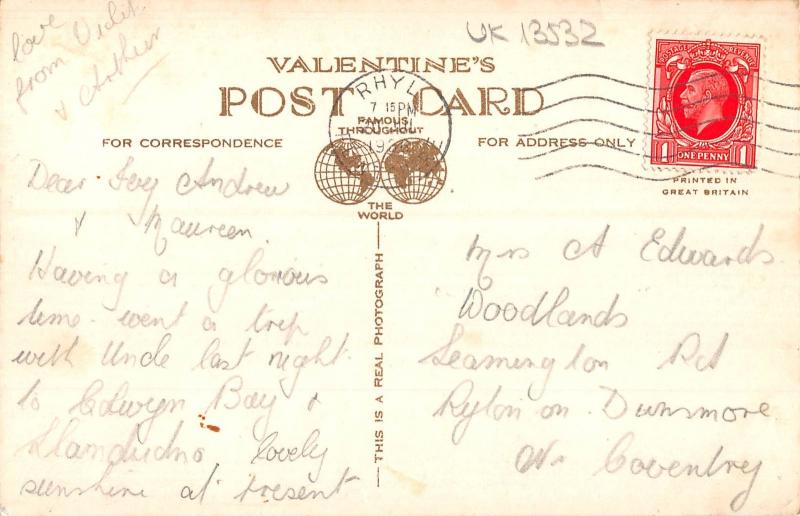 love
from Violet
& Arthur
UK 13532
VALENTINE'S
POST CARD
FAMOUS
THROUGHOUT
THE
WORLD
FOR CORRESPONDENCE
FOR ADDRESS ONLY
RHYL
7 15 PM
POSTAGE REVENUE
1 ONE PENNY 1
PRINTED IN
GREAT BRITAIN
THIS IS A REAL PHOTOGRAPH
Dear Ivy Andrew
& Maureen.
Having a glorious
time. went a trip
with Uncle last night.
to Colwyn Bay &
Llandudno lovely
sunshine at present
Mrs A Edwards.
"Woodlands"
Leamington Rd
Ryton on. Dunsmore
Nr Coventry